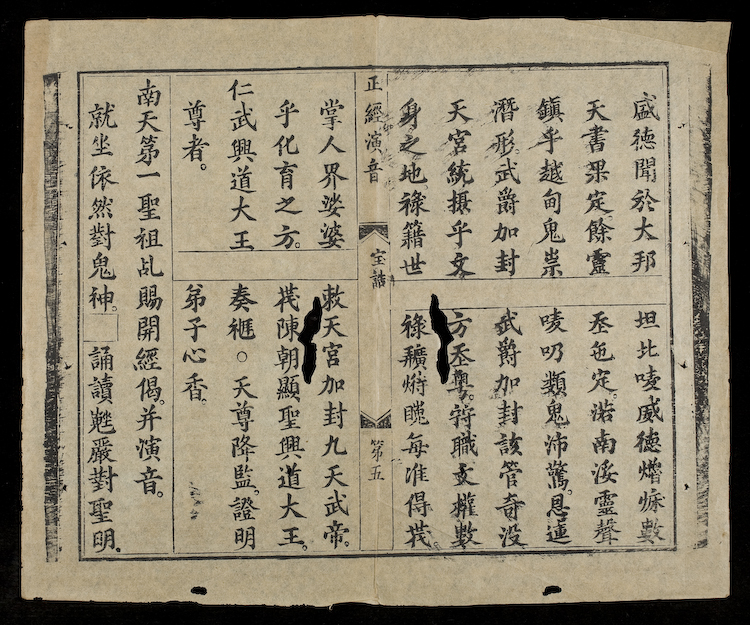 盛德聞於大邦
天書果定餘靈
鎮乎越甸鬼祟
潛形武爵加封
天宮統攝乎文
身之地祿籍世
坦比唛威德數
定渃南浽靈聲
唛叨類鬼沛驚恩連
武爵加封該管奇没
方丞職權數
祿每准得
正經演音
宝誥
第五
掌人界娑婆
乎化育之方。
仁武興道大王
尊者。
敕天宮加封九天武帝。
陳朝顯聖興道大王。
奏○天尊降監。證明
弟子心香。
南天第一聖祖乩賜開經偈并演音。
就坐依然對鬼神。
誦讀嚴對聖明。